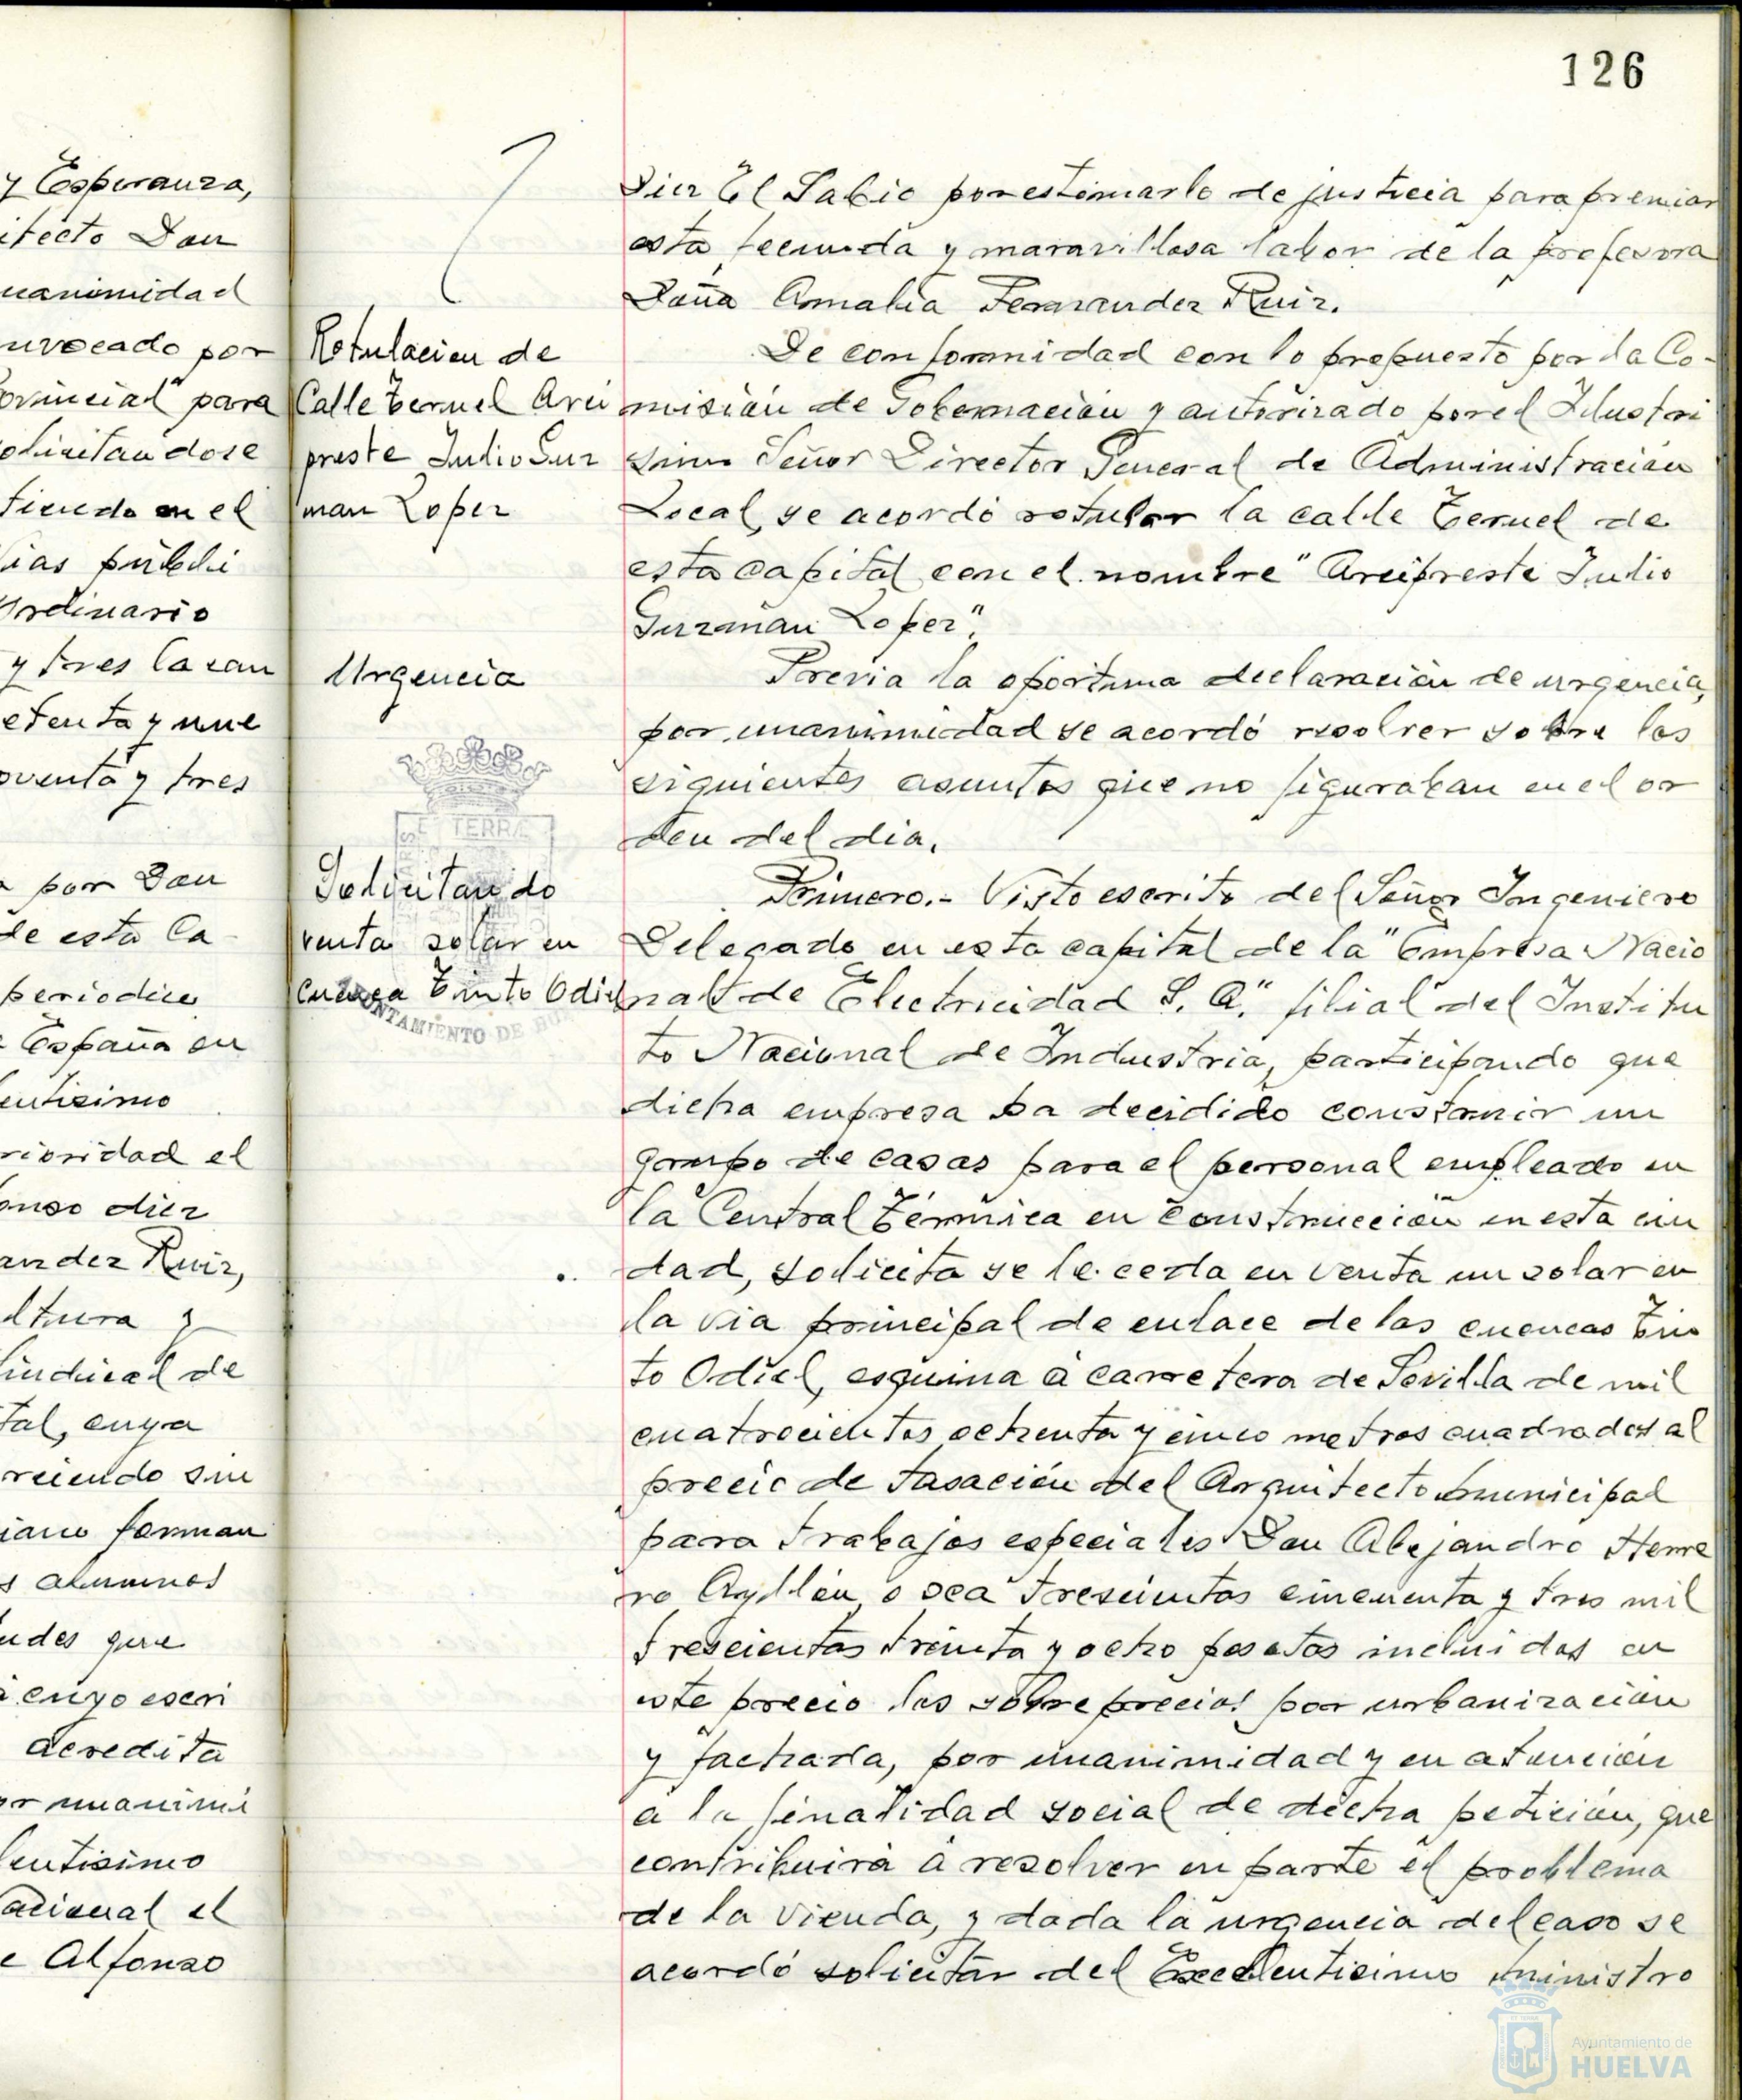 126
y Esperanza,
itecto Don
nanimidad
nvocado por
ovincial" para
olicitandose
tiendo en el
ias públi
ordinario
y tres la can
etenta y nue
oventa y tres
por Don
de esta Ca
periodica
España en
lentisimo
rioridad el
onso diez
andez Ruiz,
ltura y
indical de
tal, cuya
reiendo sin
iano forman
s alumnos
udes que
á cuyo escri
acredita
or unanimi
lentisimo
acional el
e Alfonso
Rotulacion de
Calle Teruel Arci
preste Julio Guz
man Lopez
Urgencia
Solicitando
venta solar en
cuenca Tinto Odiel
E TERRA
AYUNTAMIENTO DE HU
Diez El Sabio por estimarlo de justicia para premiar
esta fecunda y maravillosa labor de la profesora
Doña Amalia Fernandez Ruiz.
De conformidad con lo propuesto por la Co-
misión de Gobernación y autorizado por el Ilustri
simo Señor Director General de Administración
Local, se acordó rotular la calle Teruel de
esta capital con el nombre "Arcipreste Julio
Guzman Lopez".
Previa la oportuna declaración de urgencia,
por unanimidad se acordó resolver sobre los
siguientes asuntos que no figuraban en el or
den del dia.
Primero.- Visto escrito del Señor Ingeniero
Delegado en esta capital de la "Empresa Nacio
nal de Electricidad S. A." filial del Institu
to Nacional de Industria, participando que
dicha empresa ha decidido construir un
grupo de casas para el personal empleado en
la Central Térmica en construcción en esta ciu
dad, solicita se le ceda en venta un solar en
la via principal de enlace de las cuencas Tin
to Odiel, esquina á carretera de Sevilla de mil
cuatrocientos ochenta y cinco metros cuadrados al
precio de tasación del Arquitecto municipal
para trabajos especiales Don Alejandro Herre
ro Ayllón, o sea trescientas cincuenta y tres mil
trescientas treinta y ocho pesetas incluidos en
este precio los sobreprecios por urbanización
y fachada, por unanimidad y en atención
a la finalidad social de dicha petición, que
contribuirá á resolver en parte el problema
de la vienda, y dada la urgencia del caso se
acordó solicitar del Excelentisimo ministro
Ayuntamiento de
HUELVA